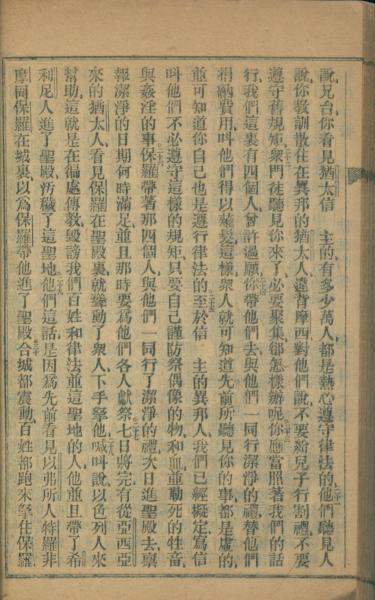 說兄台你看見猶太信　主的有多少萬人都是熱心遵守律法的他們聽見人
說你教訓散住在異邦的猶太人違背摩西對他們說不要給兒子行割禮不要
遵守舊規矩衆門徒聽見你來了必要聚集卻怎樣辦呢你應當照著我們的話
行我們這裏有四個人曾許過願你帶他們去與他們一同行潔淨的禮替他們
捐納費用叫他們得以薙髮這樣衆人就可知道先前所聽見你的事都是虛的
並可知道你自己也是遵行律法的至於信　主的異邦人我們已經擬定寫信
叫他們不必遵守這樣的規矩只要自己謹防祭偶像的物和血並勒死的牲畜
與姦淫的事保羅帶著那四個人與他們一同行了潔淨的禮次日進聖殿去稟
報潔淨的日期何時滿足並且那時要爲他們各人獻祭七日將完有從亞西亞
來的猶太人看見保羅在聖殿裏就聳動了衆人下手拏他喊叫說以色列人來
幫助這就是在徧處傳教毀謗我們百姓和律法並這聖地的人他並且帶了希
利尼人進了聖殿汚穢了這聖地他們這話是因爲先前看見以弗所人特羅非
摩同保羅在城裏以爲保羅帶他進了聖殿合城都震動百姓都跑來拏住保羅